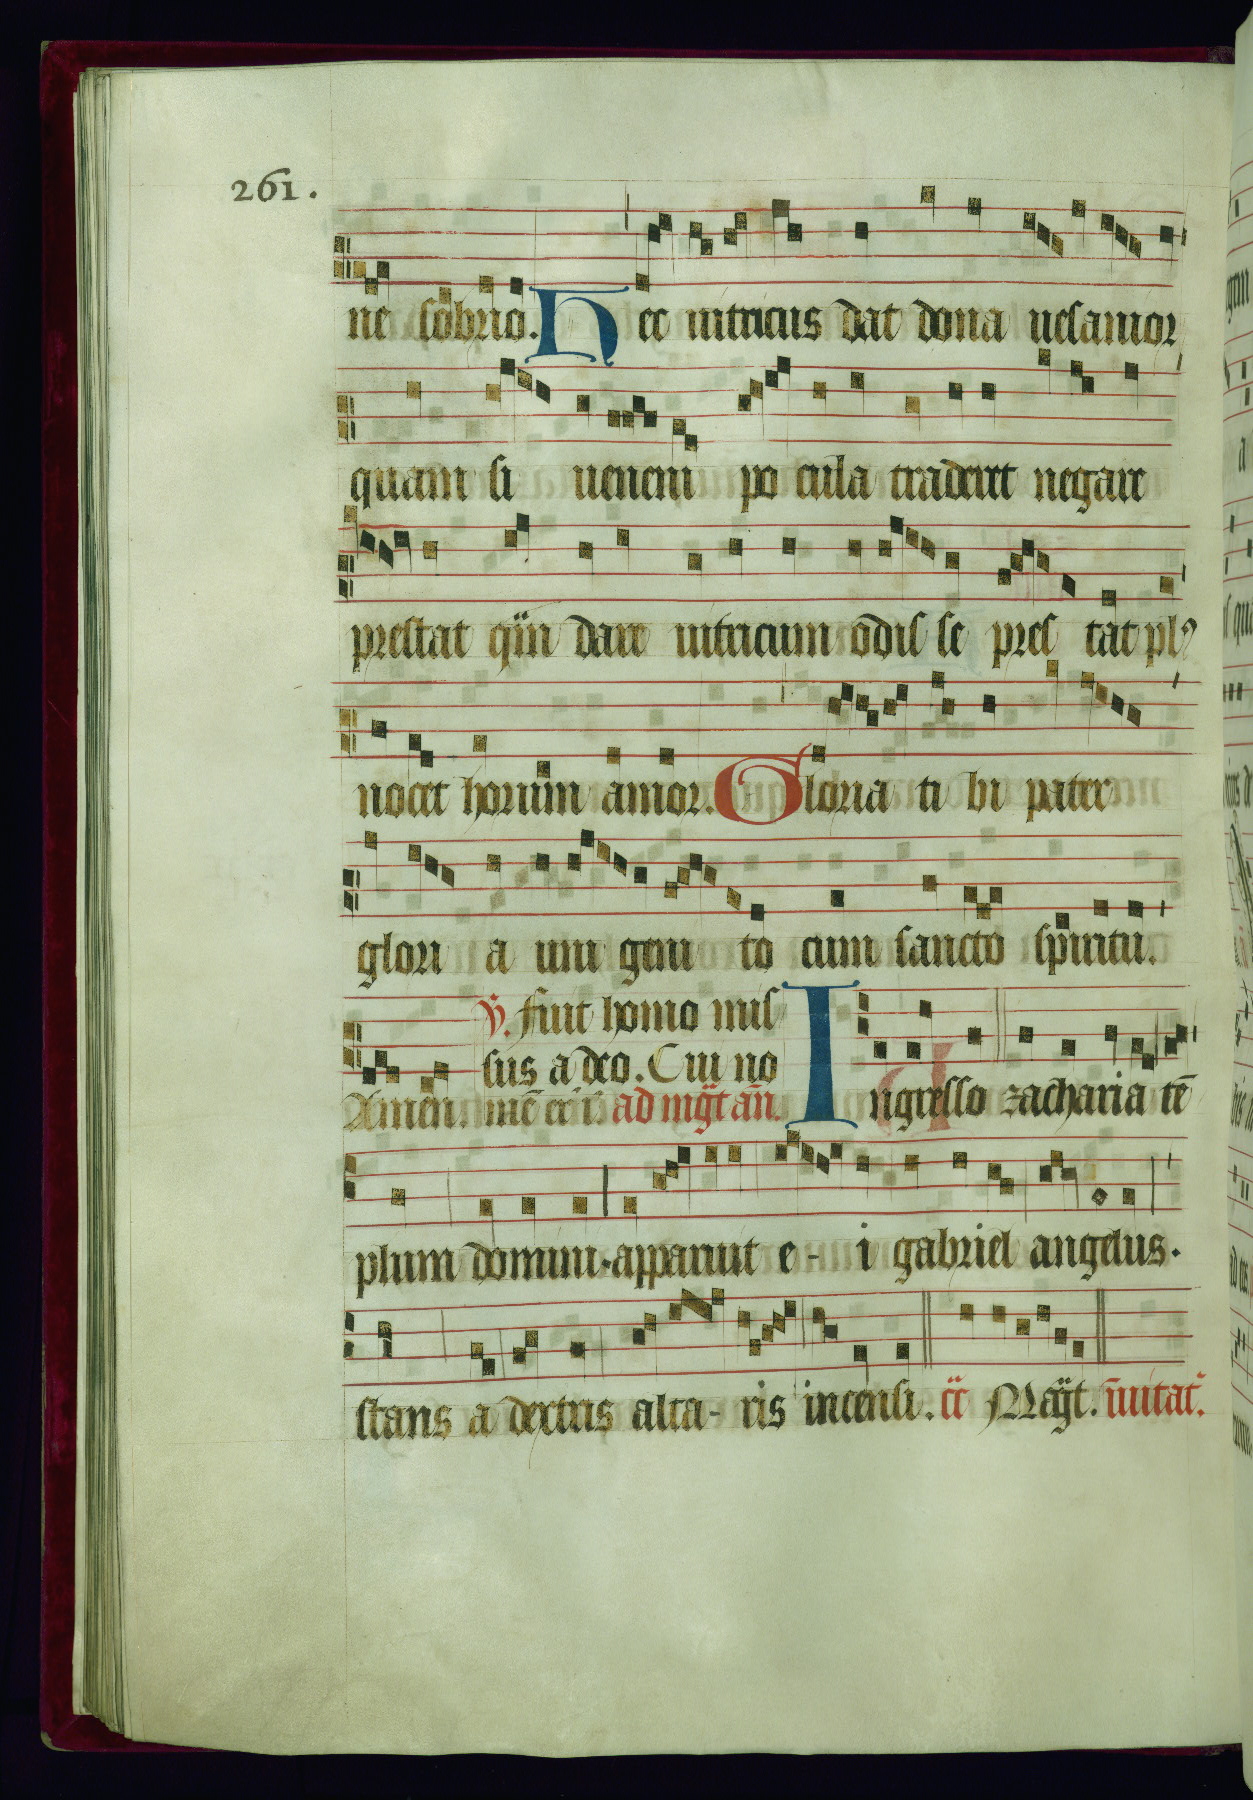 261.
ne sobrio. Hec nutricus dat dona uesanior
quam si ueneni pocula traderet negare
prestat qm dare nutricum odisse prestat pl9
nocet horum amor. Gloria tibi pater
gloria unigenito cum sancto spiritu.
℣. fuit homo mis
sus a deo. Cui no
Amen. me er i. ad mgt an. Ingresso zacharia te
plum domini·apparuit e-i gabriel angelus·
stans a dextris alta-ris incensi.